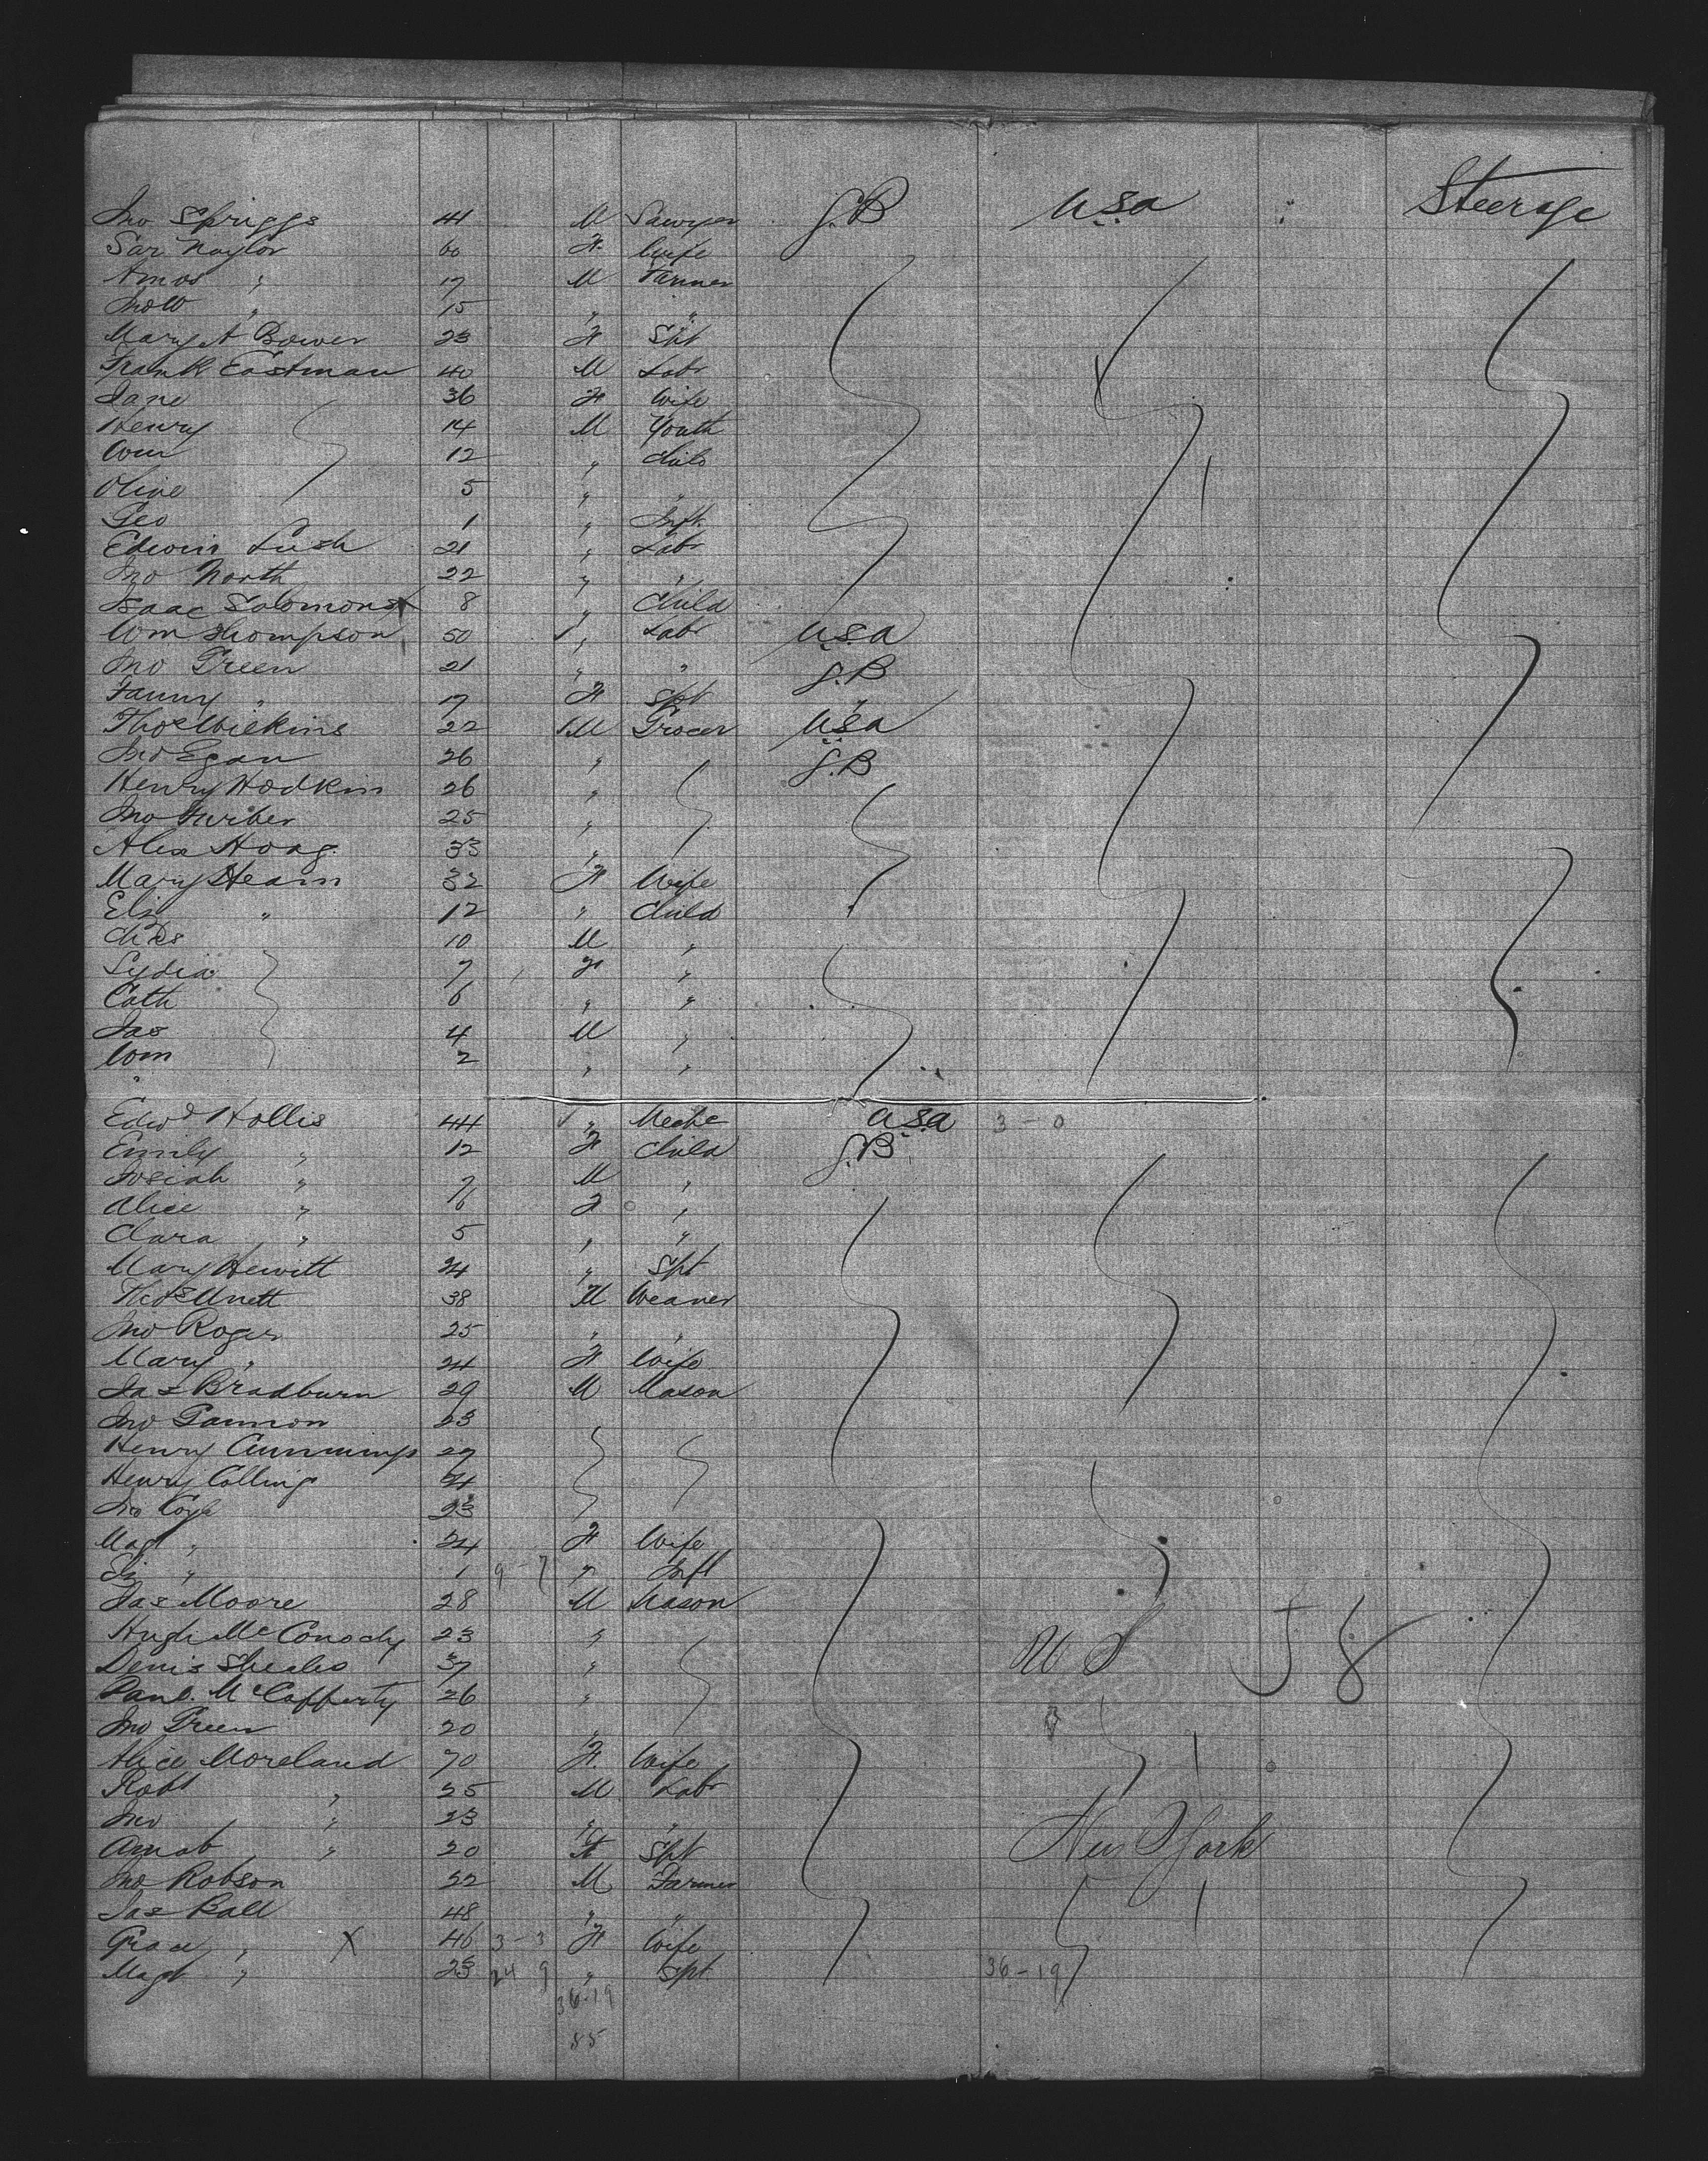 Jno Spriggs 41 M Sawyer G.B USA Steerage
Sar Naylor 60 F Wife
Amos " 17 M Farmer
Jno W " 15 " "
Mary A Bower 23 F Spt
Frank Eastman 40 M Labr
Jane 36 F Wife
Henry 14 M Youth
Wm 12 " Child
Olive 5 " "
Geo 1 " Inft
Edwin Lush 21 " Labr
Jno North 22 " "
Isaac Solomons 8 " Child
Wm Thompson 50 " Labr USA
Jno Green 21 " " G.B
Fanny " 17 F Spt "
Thos Wilkins 22 M Grocer USA
Jno Egan 26 " G.B
Henry Hodkin 26 "
Jno Furber 25 "
Alex Hoag 33 "
Mary Hearn 32 F Wife
Eliz " 12 " Child
Chas 10 M "
Lydia 7 F "
Cath 6 " "
Jas 4 M "
Wm 2 " "
Edwd Hollis 44 " Mechc USA 3-0
Emily " 12 F Child G.B
Josiah " 7 M "
Alice " 6 F "
Clara " 5 " "
Mary Hewitt 24 " Spt
Thos Unett 38 M Weaver
Jno Roger 25 " "
Mary " 24 F Wife
Jas Bradburn 29 M Mason
Jno Gannon 23
Henry Cummings 27
Henry Colling 24
Jno Coyle 23
Magt " 24 F Wife
Eliz " 1 9-7 " Inft
Jas Moore 28 M Mason
Hugh McConochy 23 "
Denis Sheales 37 "
Danl. McCafferty 26 "
Jno Green 20 "
Alice Moreland 70 F. Wife
Robt " 25 M Labr
Jno " 23 " "
" 20 F Spt New York
Jno Robson 22 M Farmer
Jas Ball 48 " "
Grace " X 46 3-3 F Wife
Magt " 23 24 9 " Spt 36-19
36-19
55